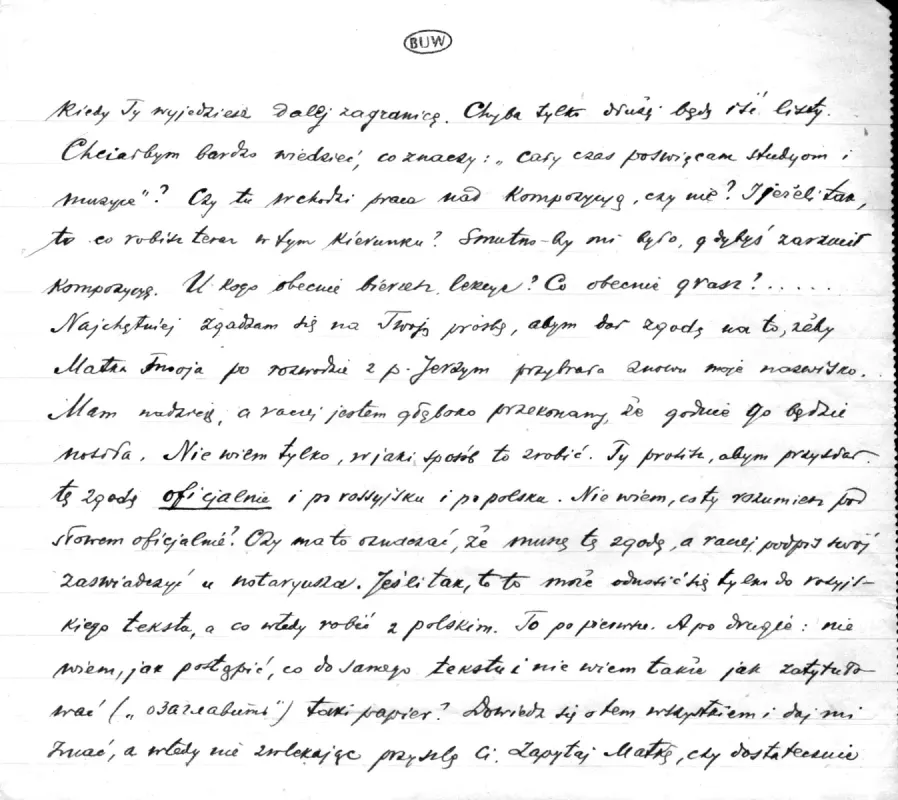 BUW
Kiedy Ty wyjedziesz dalej zagranicę. Chyba tylko dłużej będą iść listy.
Chciałbym bardzo wiedzieć, co znaczy: „cały czas poświęcam studyom i
muzyce"? Czy tu wchodzi praca nad Kompozycyą, czy nie? I jeżeli tak,
to co robisz teraz w tym kierunku? Smutno-by mi było, gdybyś zarzucił
Kompozycyę. U kogo obecnie bierzesz lekcye? Co obecnie grasz?.....
Najchętniej zgadzam się na Twoją prośbę, abym dał zgodę na to, żeby
Matka Twoja po rozwodzie z p. Jerzym przybrała znowu moje nazwisko.
Mam nadzieję, a raczej jestem głęboko przekonany, że godnie go będzie
nosiła. Nie wiem tylko, w jaki sposób to zrobić. Ty prosisz, abym przysłał
tę zgodę oficjalnie i po rossyjsku i po polsku. Nie wiem, co ty rozumiesz pod
słowem oficjalnie? Czy ma to oznaczać, że muszę tę zgodę, a raczej podpis swój
zaświadczyć u notaryusza. Jeśli tak, to to może odnosić się tylko do rosyjs-
kiego teksta, a co wtedy robić z polskim. To po pierwsze. A po drugie: nie
wiem, jak postąpić, co do samego tekstu i nie wiem także jak zatytuło-
wać („озаглавить") taki papier? Dowiedz się o tem wszystkiem i daj mi
znać, a wtedy nie zwlekając przyszlę Ci. Zapytaj Matkę, czy dostatecznie